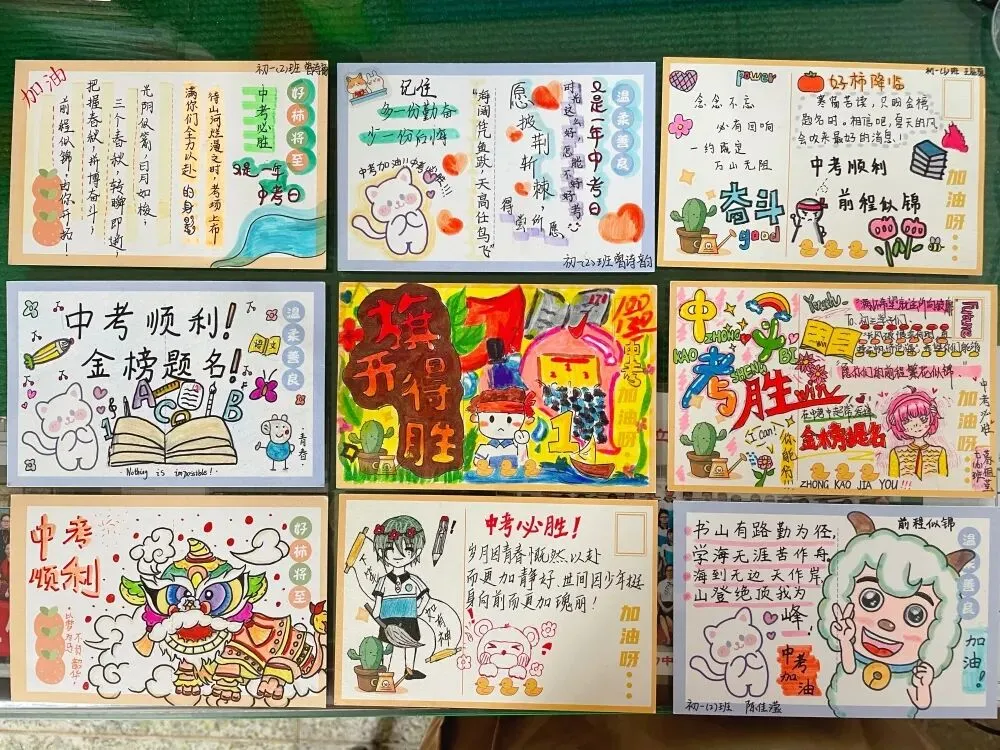 加油
初一(2)班
好柿将至
中考必胜
又是一年
中考日
待山河烂漫之时,考场上布
满你们全力以赴的身影
光阴似箭,日月如梭;
三个春秋,转瞬即逝,
把握春秋,拼搏奋斗,
前程似锦,由你开拓!
温柔善良
记住
多一份勤奋
少一份后悔
中考加油!!中考必胜!!!
又是一年中考日
时光这么好,怎能不好好考
愿披荆斩棘,
得尝所愿
海阔凭鱼跃,天高任鸟飞
初一(2)班
power
念念不忘
必有回响
一约既定
万山无阻
奋斗
good
好柿降临
寒窗苦读,只盼金榜
题名时。相信吧,夏天的风
会吹来最好的消息!
中考顺利
前程似锦
加油呀...
中考顺利!
金榜题名!
温柔善良
语文
A C B
Nothing is impossible!
青春
旗开得胜
中考
加油呀...
中考必胜
ZHONG
KAO
BI
SHENG
win
Youth
Future
I can!
你能行!
在中考中超常发挥
金榜题名
愿你们的前程繁花似锦
ZHONG KAO JIA YOU!!!
加油呀...
中考必胜
中考
顺利
好柿将至
以梦为马
不负韶华
中考必胜!
岁月因青春慨然以赴
而更加静好,世间因少年挺
身向前而更加瑰丽!
加油呀...
书山有路勤为径,
学海无涯苦作舟,
海到无边天作岸,
山登绝顶我为
峰!
前程似锦
温柔善良
中考
加油
加油!
初一(2)班 陈佳滢